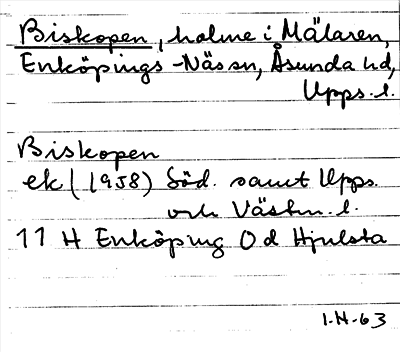 Biskopen, holme i Mälaren,
Enköpings-Näs sn, Åsunda hd,
Upps. l.
Biskopen
ek (1958) Söd. samt Upps.
och Västm. l.
11 H Enköping 0 d Hjulsta
I.H-63